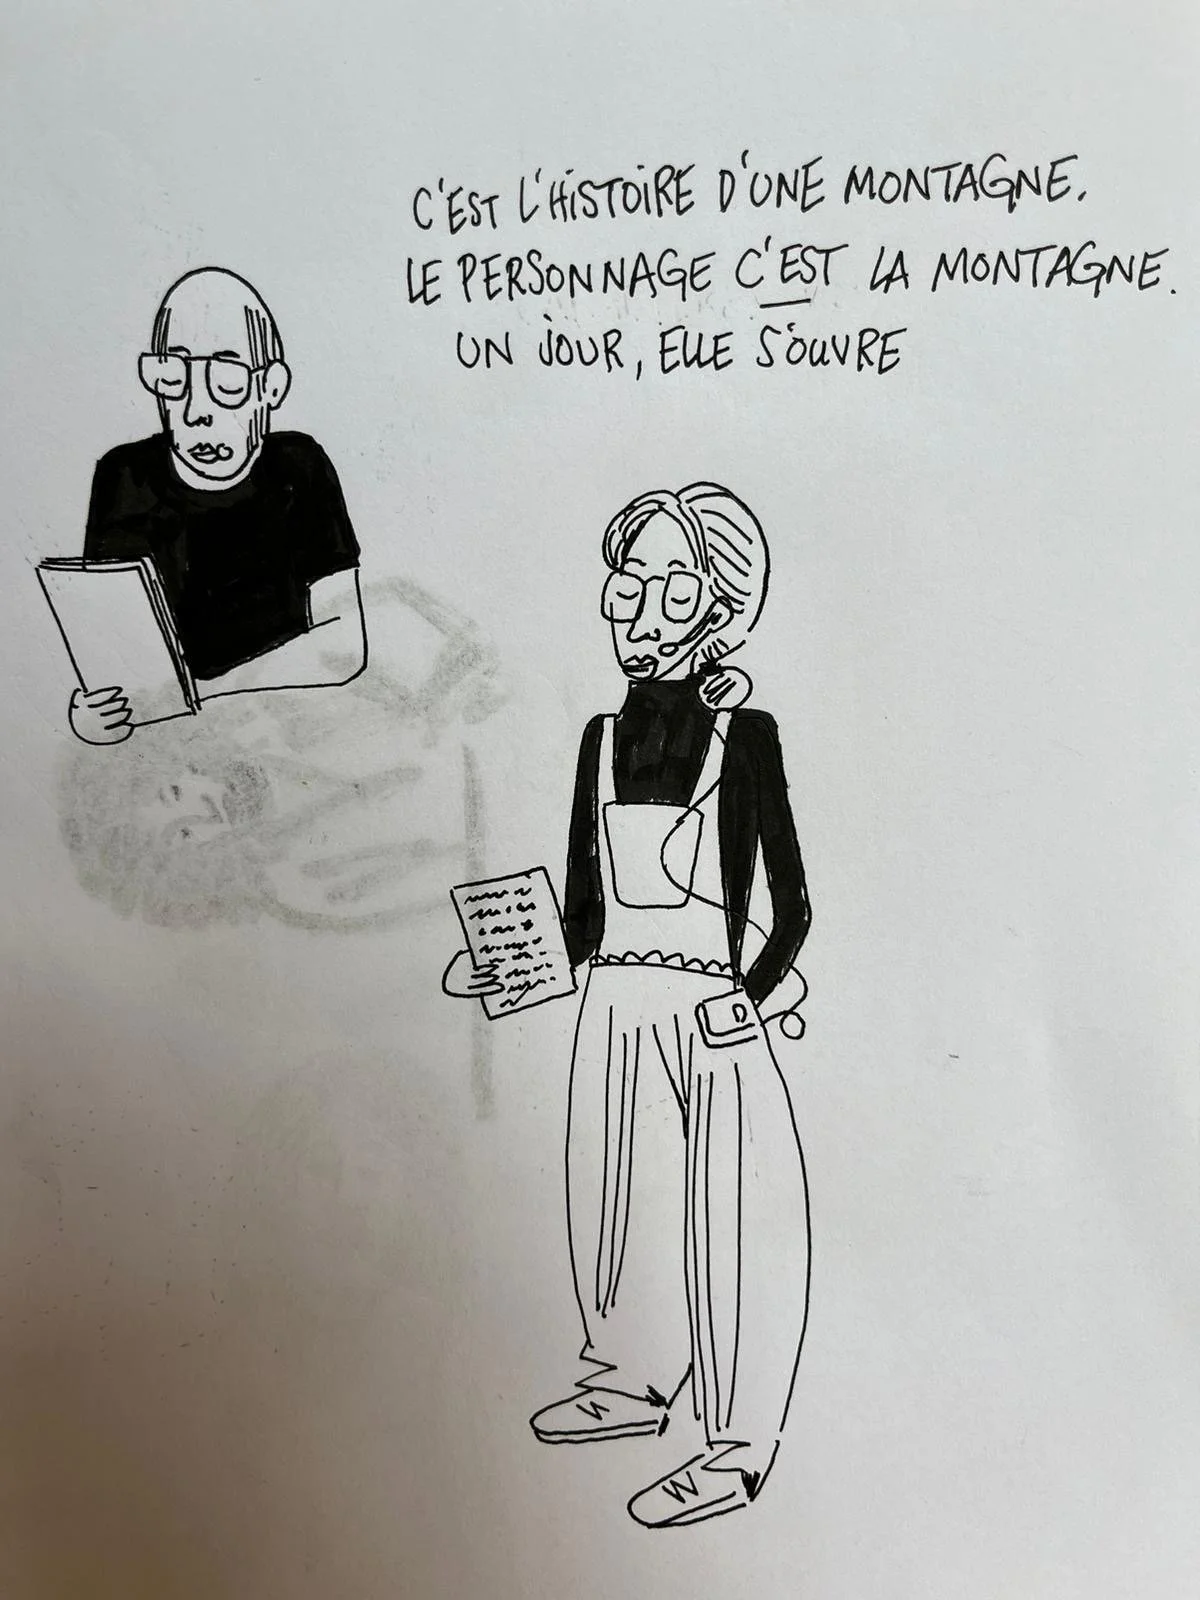 C'EST L'HISTOIRE D'UNE MONTAGNE.
LE PERSONNAGE C'EST LA MONTAGNE.
UN JOUR, ELLE S'OUVRE